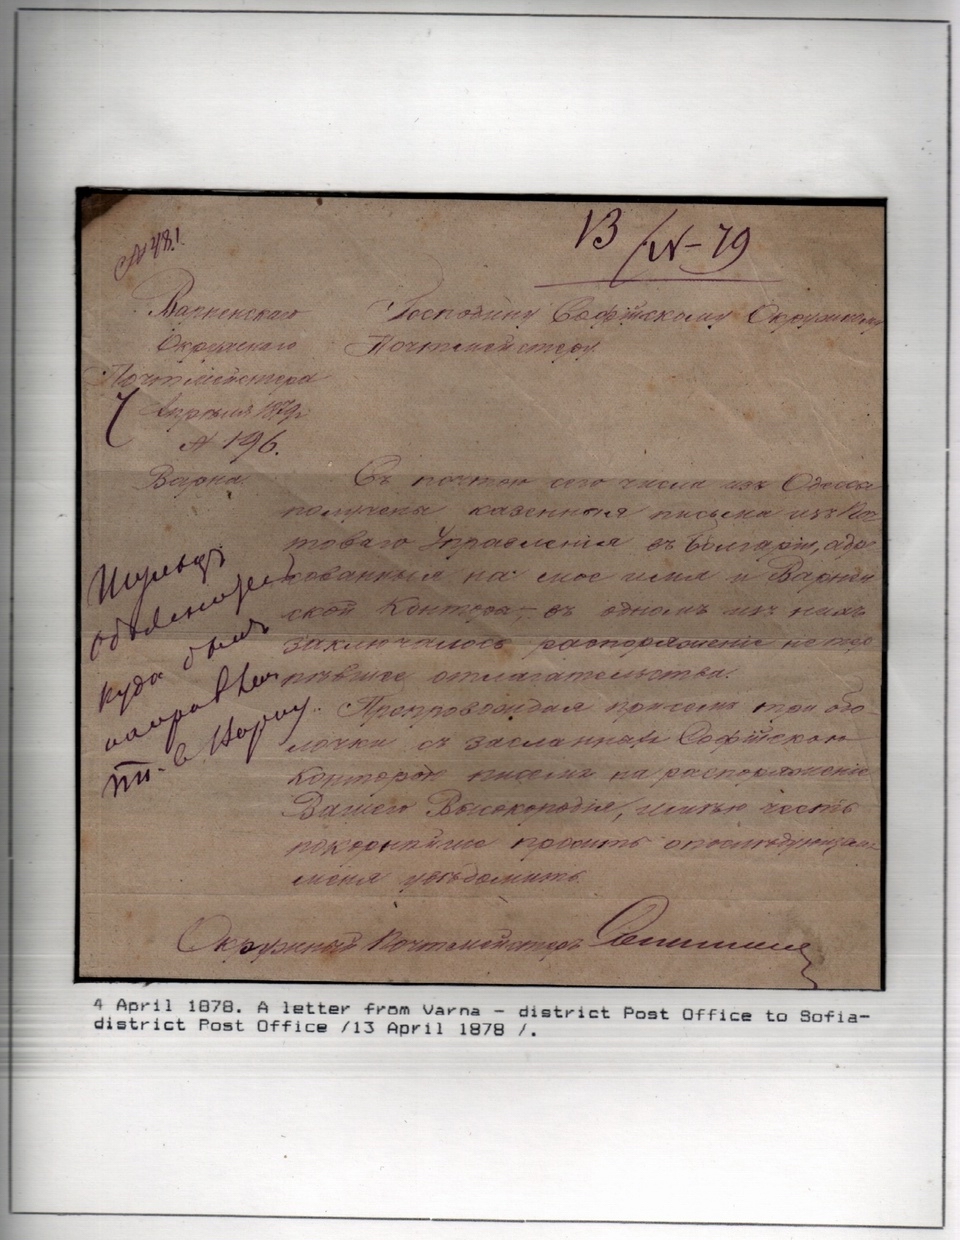 № 481.
13/IV–79
Варненскаго
Окружнаго
Почтмейстера
Апреля 1879 г.
№ 196.
Варна.
Господину Софійскому Окружному
Почтмейстеру.
Съ почтою сего числа изъ Одессы
получены казенныя письма изъ Поч
товаго Управленія въ Болгаріи, адре
сованныя на мое имя и Варнен
ской Конторы, въ одномъ изъ нихъ
заключалось распоряженіе не тер
пѣвшее отлагательства.
Препровождая при семъ обо
лочки съ засланныхъ Софійскою
Конторою писемъ на распоряженіе
Вашего Высокородія, имѣю честь
покорнѣйше просить о послѣдующемъ
меня увѣдомить.
Окружный Почтмейстеръ
куда были
4 April 1878. A letter from Varna – district Post Office to Sofia–
district Post Office /13 April 1878 /.